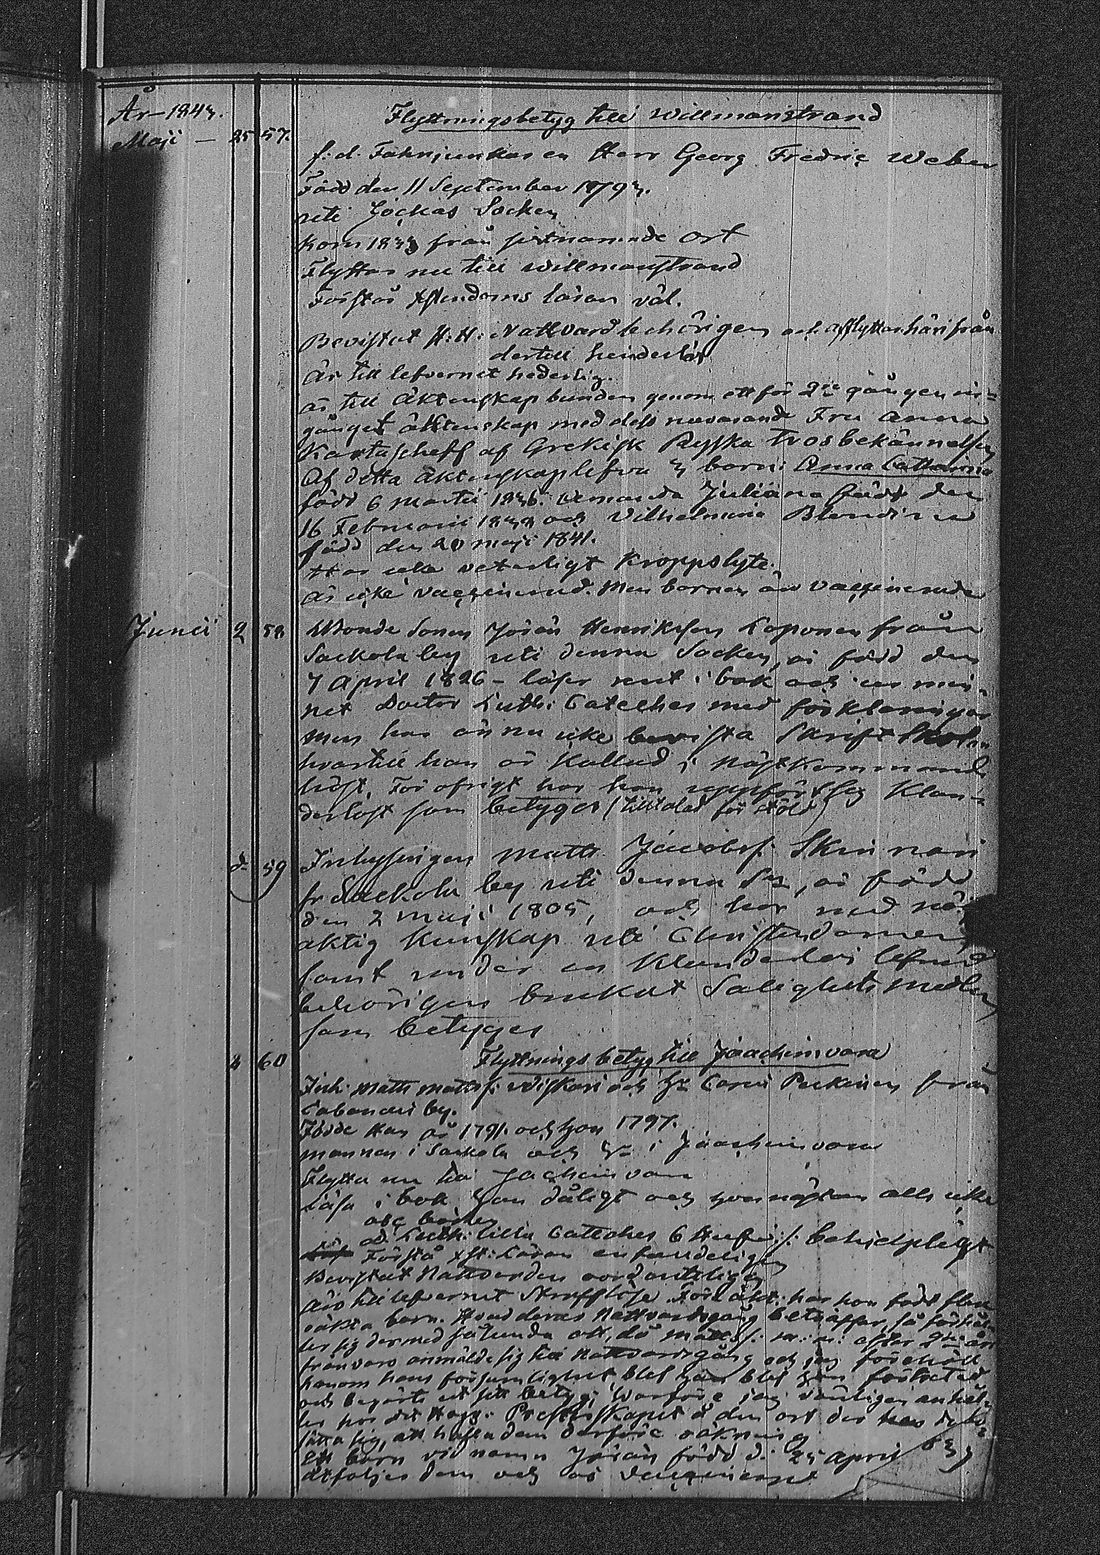 År 1843.
Flyttningsbetyg till Willmanstrand
Maji — 25 57.
f: d. Fahnjunkaren Herr Georg Fredric Weber
Född den 11 September 1793.
uti Jockas Socken
Kom 1833 från sistnämnde ort
Flyttar nu till Willmanstrand
Förstår Xstendoms läran väl.
Bevistat H: H: Nattvard behörigen och afflyttar härifrån
dertill hinderlös
Är till lefvernet hederlig.
är till Äktenskap bunden genom ett för 2dre gången in-
gånget äktenskap med dess nuvarande Fru Anna
Kartascheff af Grekisk Ryska Trosbekännelsen
Af detta äktenskap lefva 3 barn: Anna Catharina
född 6 Martii Amanda Juliana född den
16 Februarii och Vilhelmina Blondina
född den 20 Maji 1841.
Har icke veterligt Kroppslyte.
är icke vaccinerad. Men barnen äro vaccinerade
Junii 2 58 Bonde Sonen Jöran Henriksson Koponen från
Sackola by uti denna Socken, är född den
7 April 1826 – läser rent i bok och ur min-
net Doctor Luth: Cateches med förklaringar
Men har ännu icke bevista Skrift Skolan
hvartill han är Kallad i nästkommande
höst. För öfrigt har han uppfört sig Klan-
derlöst som betygas (tilltalad för stöld)
d: 59 Inhysingen Matts Jacobss. Skinnari
fr Sackola by uti denna Sn, är född
den 2 Maji 1805, och har med nöj-
aktig Kunskap uti Christendomen
samt under en Klanderlös lefnad
behörigen brukat Salighets medlen
som betyges
4 60 Flyttnings betyg till Jaachimvara
Inh: Matts Mattss: och Carin Pirkinen från
by.
Födde Han år 1791. och hon 1797.
mannen i Sackola och i Jaachimvara
Flytta nu till Jachimvara
Läsa i bok han dåligt och hon nästan alls icke
abc boken
Luth: lilla Catteches 6 Hufvs: behielpligt
Förstå Xst: Läran enfaldeligen
Bevistat Nattvarden oordenteligen
Äro till lefvernet Strafflöse För äkt: har hon född flera
oäkta barn. Hvad deras Nattvardsgång beträffar, så förhål-
ler sig dermed sålunda att, då Matts
frånvaro anmälde sig till Nattvardsgång och jag förehöll
honom hans försumlighet blef han förtretad
och begärte ut sitt betyg; Hvarföre jag vänligen anhål-
ler hos det Högv: Presterskapet å den ort der de bo-
sätta sig, att hafva dem derföre räkning
Ett barn vid namn Jöran född d. 25 April
åtföljer dem och är vaccinerad